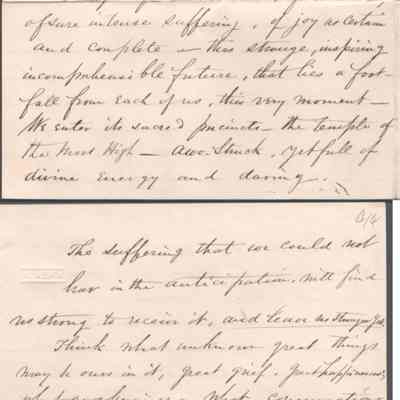 of sure intense suffering, of joy as certain
and complete — this strange, inspiring
incomprehensible future, that lies a foot-
fall from each of us, this very moment —
We enter its sacred precincts — the temple of
the Most High — awe-struck, yet full of
divine energy and daring.
The suffering that we could not
bear in the anticipation, will find
us strong to receive it, and leave us stronger yet.
Think what unknown great things
may be ours in it, great grief, great happinesses,